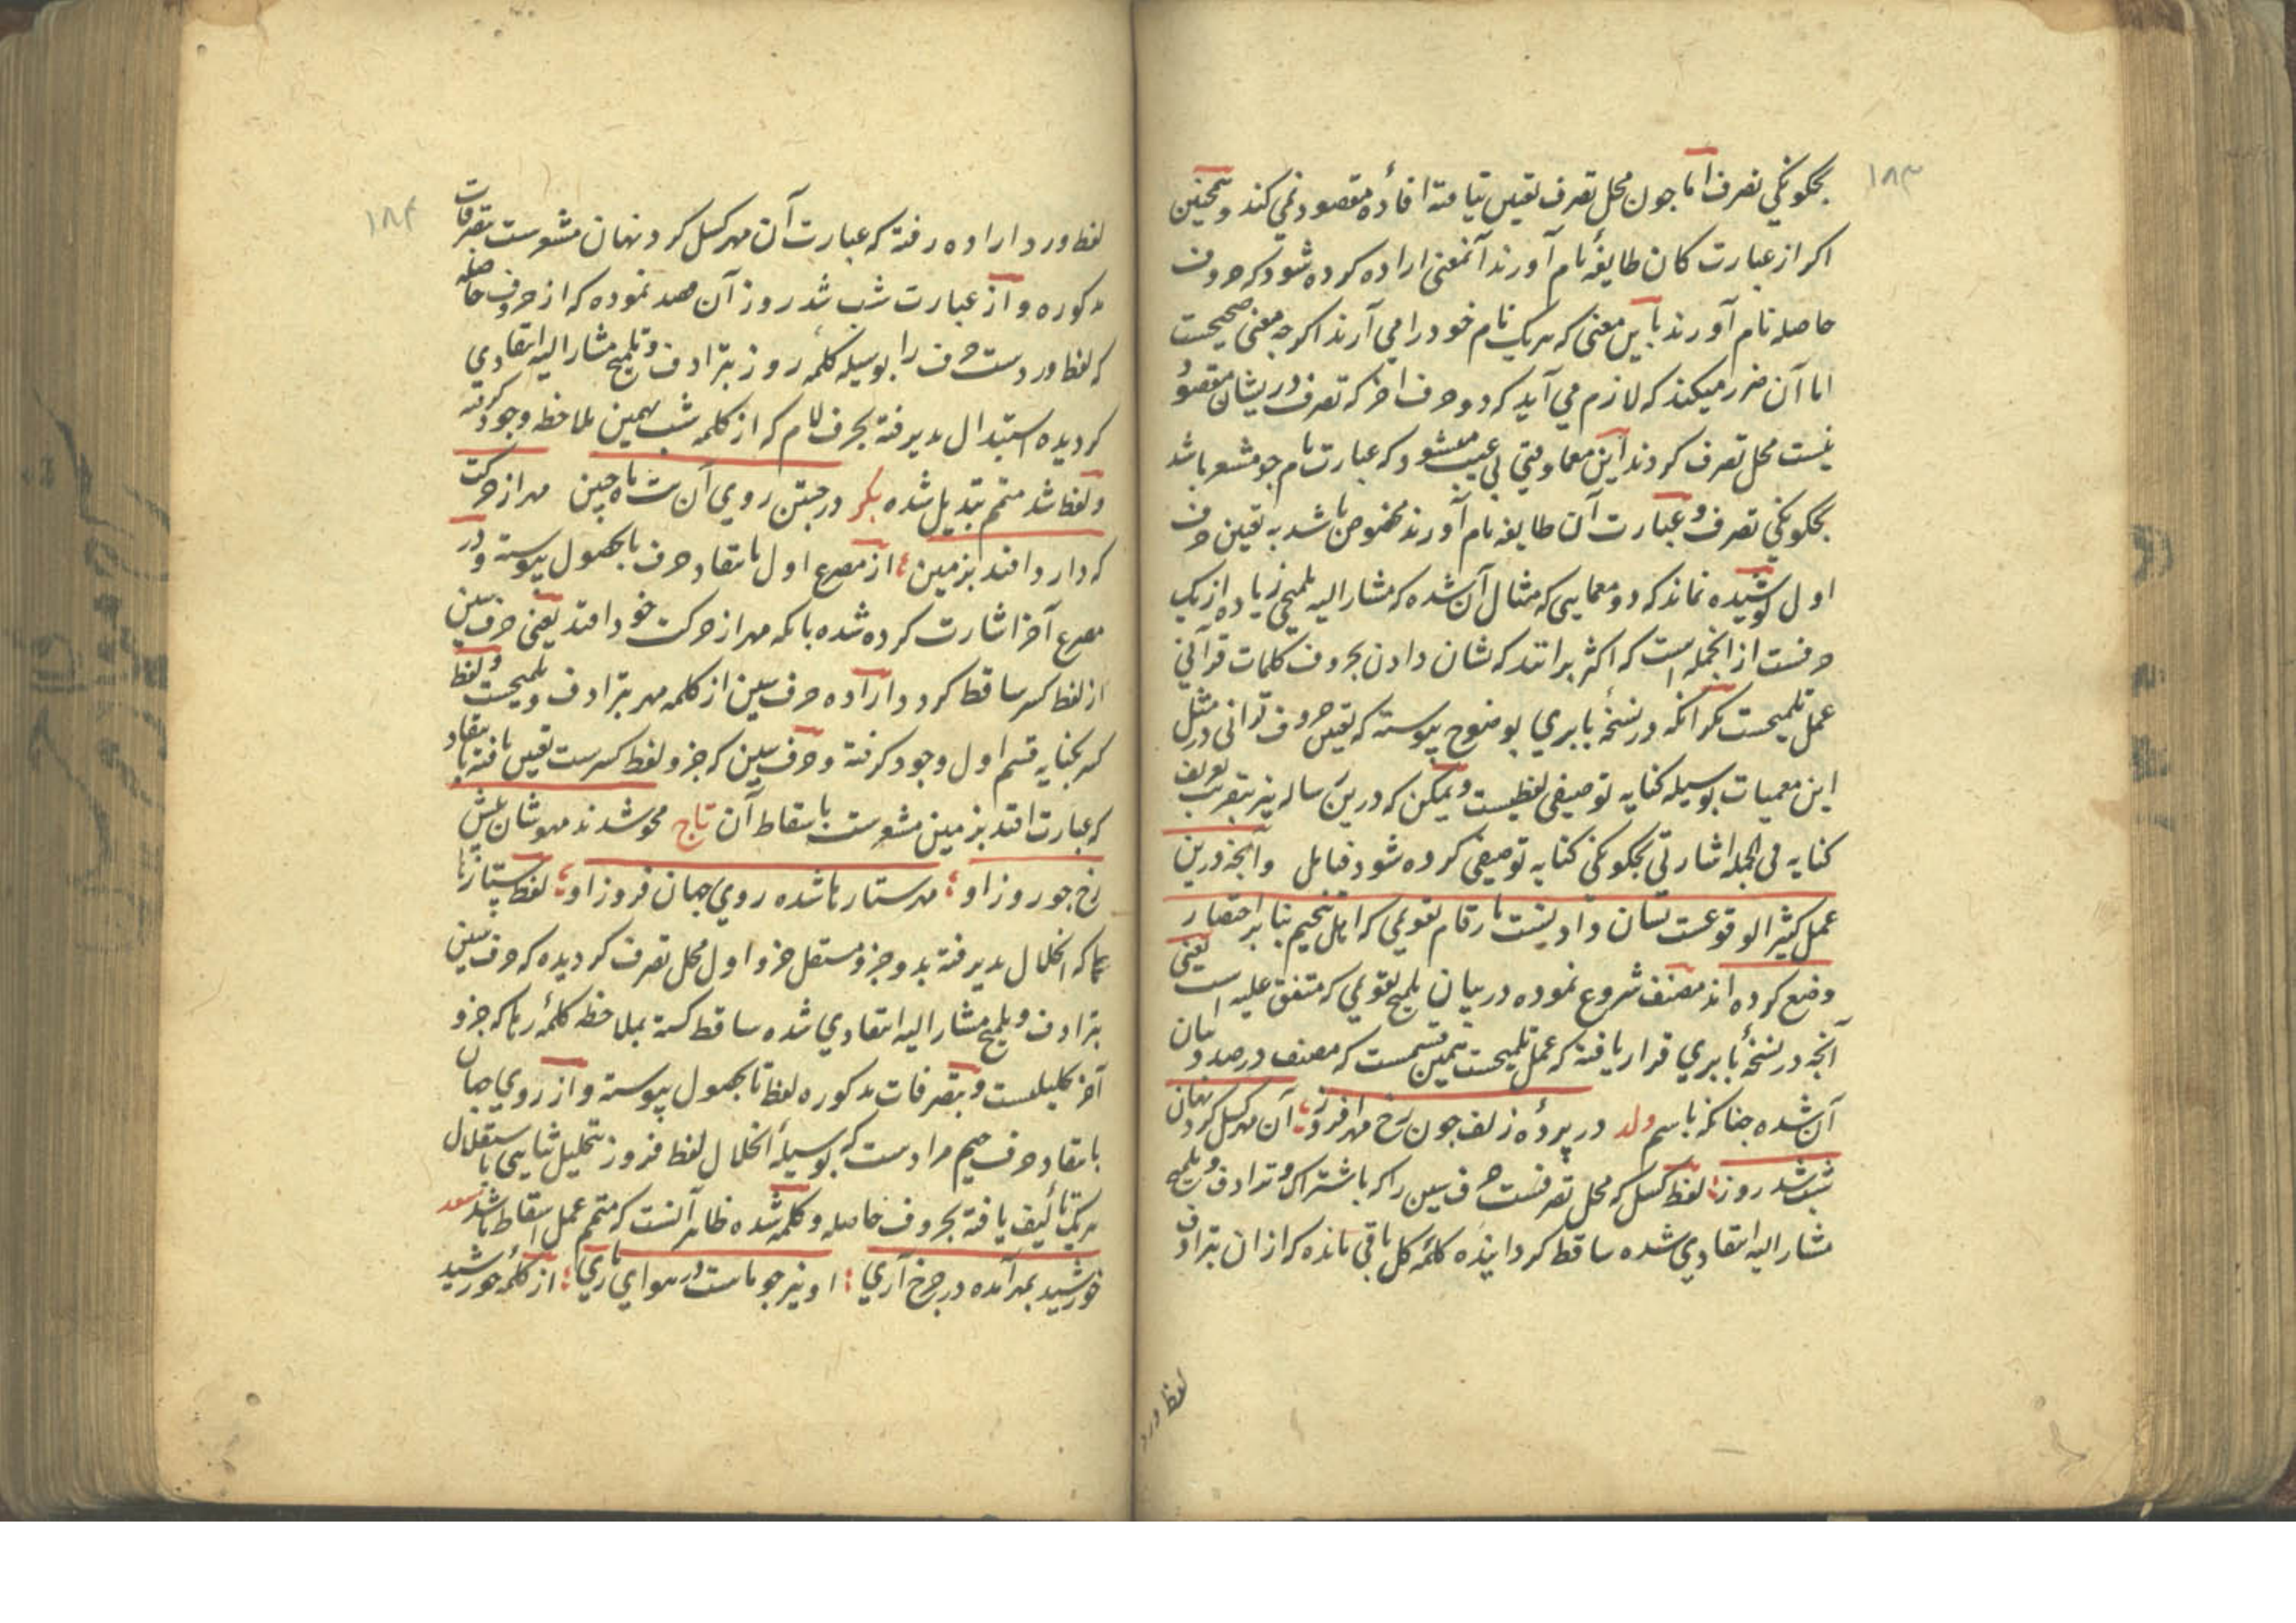 ۱۸۳
بچگونگی تصرف اما چون محل تصرف تعیین نیافته افادهٔ مقصود نمی کند و همچنین
اکر از عبارت کان طایفهٔ نام آورند آنمعنی اراده کرده شود که حروف
حاصله نام آورند باین معنی که هریک نام خود را می آرند اکرچه معنی صحیحست
اما آن ضرر میکند که لازم می آید که دو حرف اخر که تصرف در یشان مقصود
نیست محل تصرف کردند این معما وقتی بی عیب میشود که عبارت نام جو مشعر باشد
بچگونگی تصرف و عبارت آن طایفه نام آورند مخصوص باشد به تعیین حرف
اول پوشیده نماند که دو معمایی که مثال آن شده که مشار الیه تلمیحی زیاده از یک
حرفست از انجمله است که اکثر برانند که نشان دادن بحروف کلمات قرآنی
عمل تلمیحست مکر انکه در نسخهٔ بابری بوضوح پیوسته که تعیین حروف قرانی در مثل
این معمیات بوسیله کنایه توصیفی لفظیست و ممکن که درین رساله نیز بتقریب تعریف
کنایه فی الجمله اشارتی بچگونگی کنایه توصیفی کرده شود فتامل وآنچه درین
عمل کثیر الوقوعست نشان دادنیست بارقام تقویمی که اهل تنجیم بنا بر اختصار
وضع کرده اند مصنف شروع نموده در بیان تلمیح تقویمی که متفق علیه است یعنی
آنچه در نسخهٔ بابری قرار یافته که عمل تلمیحست همین قسمست که مصنف در صدد بیان
آن شده چنانکه باسم ولد در پردهٔ زلف چون رخ مهر افروز آن مه کسل کرد نهان
شب شد روز لفظ کسل که محل تصرفست حرف سین را که باشتراک و ترادف و تلمیح
مشار الیه انتقادی شده ساقط کردانیده کلمهٔ کل باقی مانده که از ان بترادف
لفظ ورد
۱۸۴
لفظ ورد اراده رفته که عبارت آن مهر کسل کرد نهان مشعرست بتصرفات
مذکوره و از عبارت شب شد روز آن قصد نموده که از حروف حاصله
که لفظ وردست حرف را بوسیله کلمهٔ روز بترادف و تلمیح مشار الیه انتقادی
کردیده استبدال پذیرفته بحرف لام که از کلمه شب بهمین ملاحظه وجود کرفته
ولفظ شد متمم تبدیل شده بکر در جستن روی آن بت ماه جبین مهر از حرکت
که دارد افتد بزمین از مصرع اول بانتقاد حرف با بحصول پیوسته و در
مصرع آخر اشارت کرده شده بانکه مهر از حرکت خود افتد یعنی حرف سین
از لفظ کسر ساقط کردد و اراده حرف سین از کلمه مهر بترادف و تلمیحست و لفظ
کسر بکنایه قسم اول وجود کرفته و حرف سین که جزو لفظ کسرست تعیین یافته بانتقاد
که عبارت افتد بزمین مشعرست باسقاط آن تاج محو شدند مهوشان پیش
رخ چو روز او مهر ستار ها شده روی جهان فروز او لفظ ستار ها
بجا که انحلال پذیرفته بدو جزو مستقل جزو اول محل تصرف کردیده که حرف سین
بترادف و تلمیح مشار الیه انتقادی شده ساقط کشته بملاحظه کلمهٔ رها که جزو
آخر تحلیلست و بتصرفات مذکوره لفظ تا بحصول پیوسته و از روی جهان
بانتقاد حرف جیم مرادست که بوسیلهٔ انحلال لفظ فروز تحلیل ثنایی باستقلال
هریک تألیف یافته بحروف حاصله و کلمه شده ظاهر آنست که متمم عمل اسقاط باشد سعد
خورشید بمهر آمده در چرخ آری او نیز چو ماست در هوای یاری از کلمهٔ خورشید